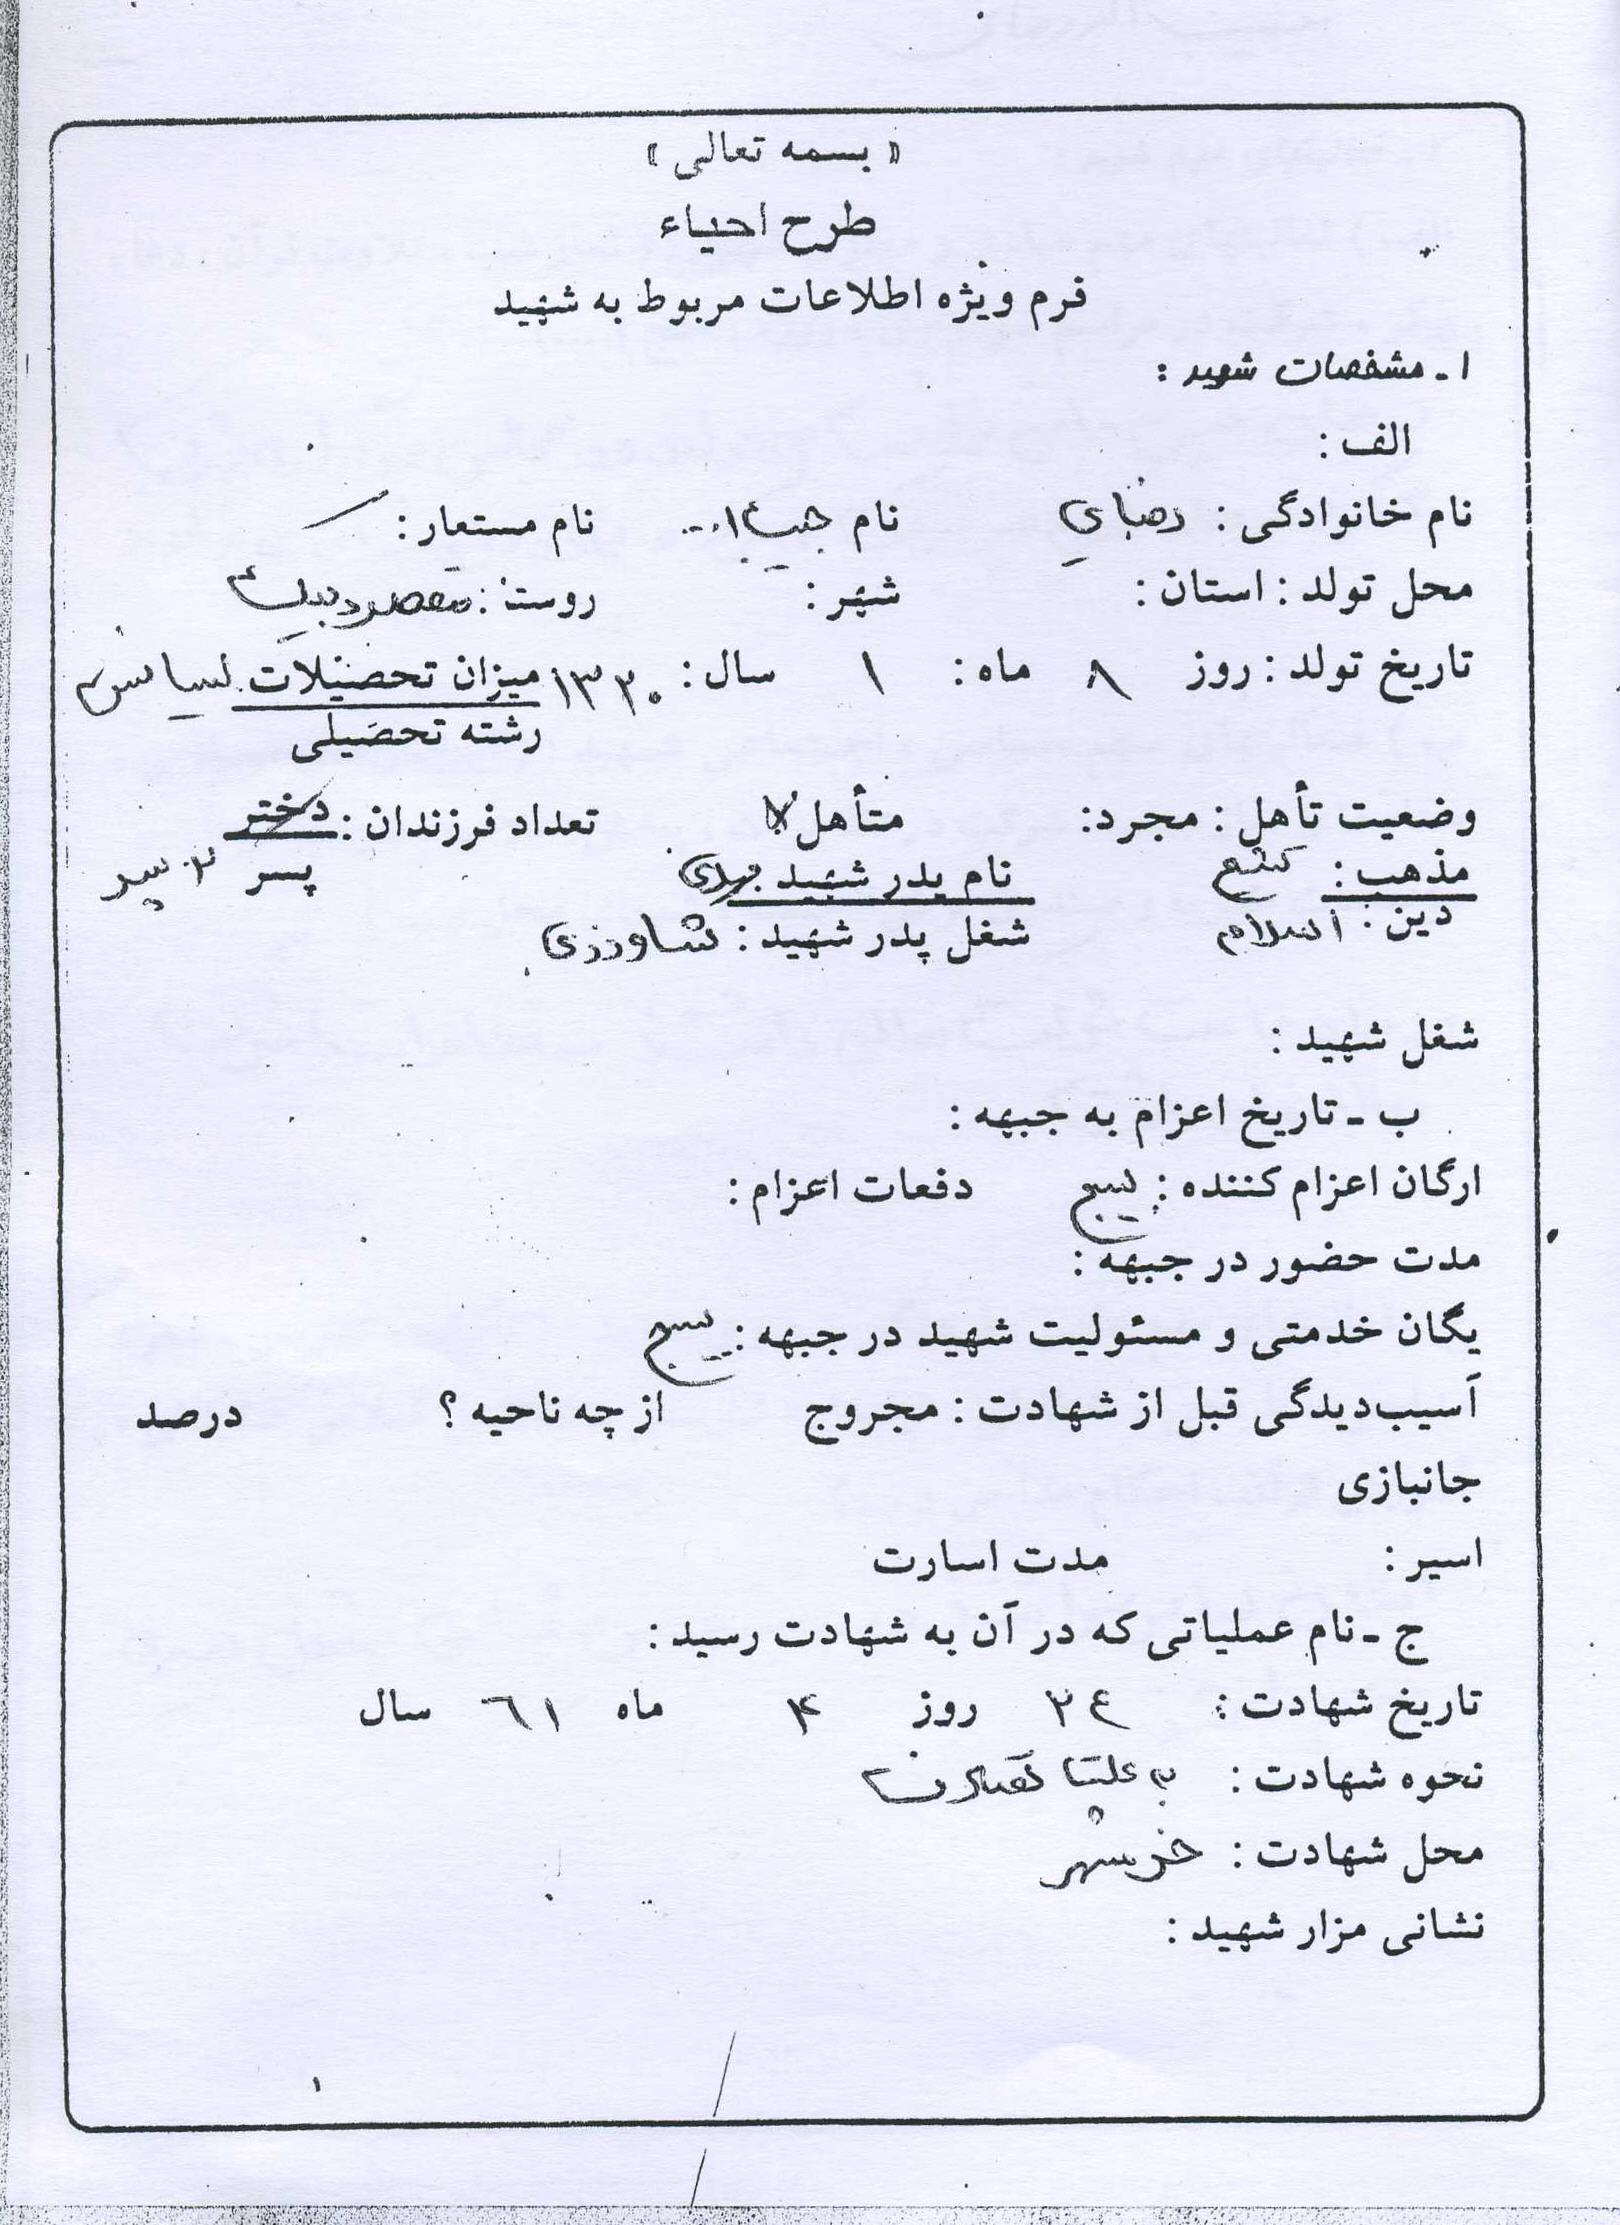 « بسمه تعالی »
طرح احیاء
فرم ویژه اطلاعات مربوط به شهید
۱ـ مشخصات شهید :
الف :
نام خانوادگی : رضایی نام حبیب ا... نام مستعار :
محل تولد : استان : شهر : روستا :
تاریخ تولد : روز ۸ ماه : ۱ سال : ۱۳۳۰ میزان تحصیلات لیسانس
رشته تحصیلی
وضعیت تأهل : مجرد : متأهل تعداد فرزندان : دختر
مذهب : تشیع نام پدر شهید مهدی پسر ۲ پسر
دین : اسلام شغل پدر شهید : کشاورزی
شغل شهید :
ب ـ تاریخ اعزام به جبهه :
ارگان اعزام کننده : بسیج دفعات اعزام :
مدت حضور در جبهه :
یگان خدمتی و مسئولیت شهید در جبهه : بسیج
آسیب‌دیدگی قبل از شهادت : مجروح از چه ناحیه ؟ درصد
جانبازی
اسیر : مدت اسارت
ج ـ نام عملیاتی که در آن به شهادت رسید :
تاریخ شهادت : ۲۴ روز ۴ ماه ۶۱ سال
نحوه شهادت :
محل شهادت : خرمشهر
نشانی مزار شهید :
۱